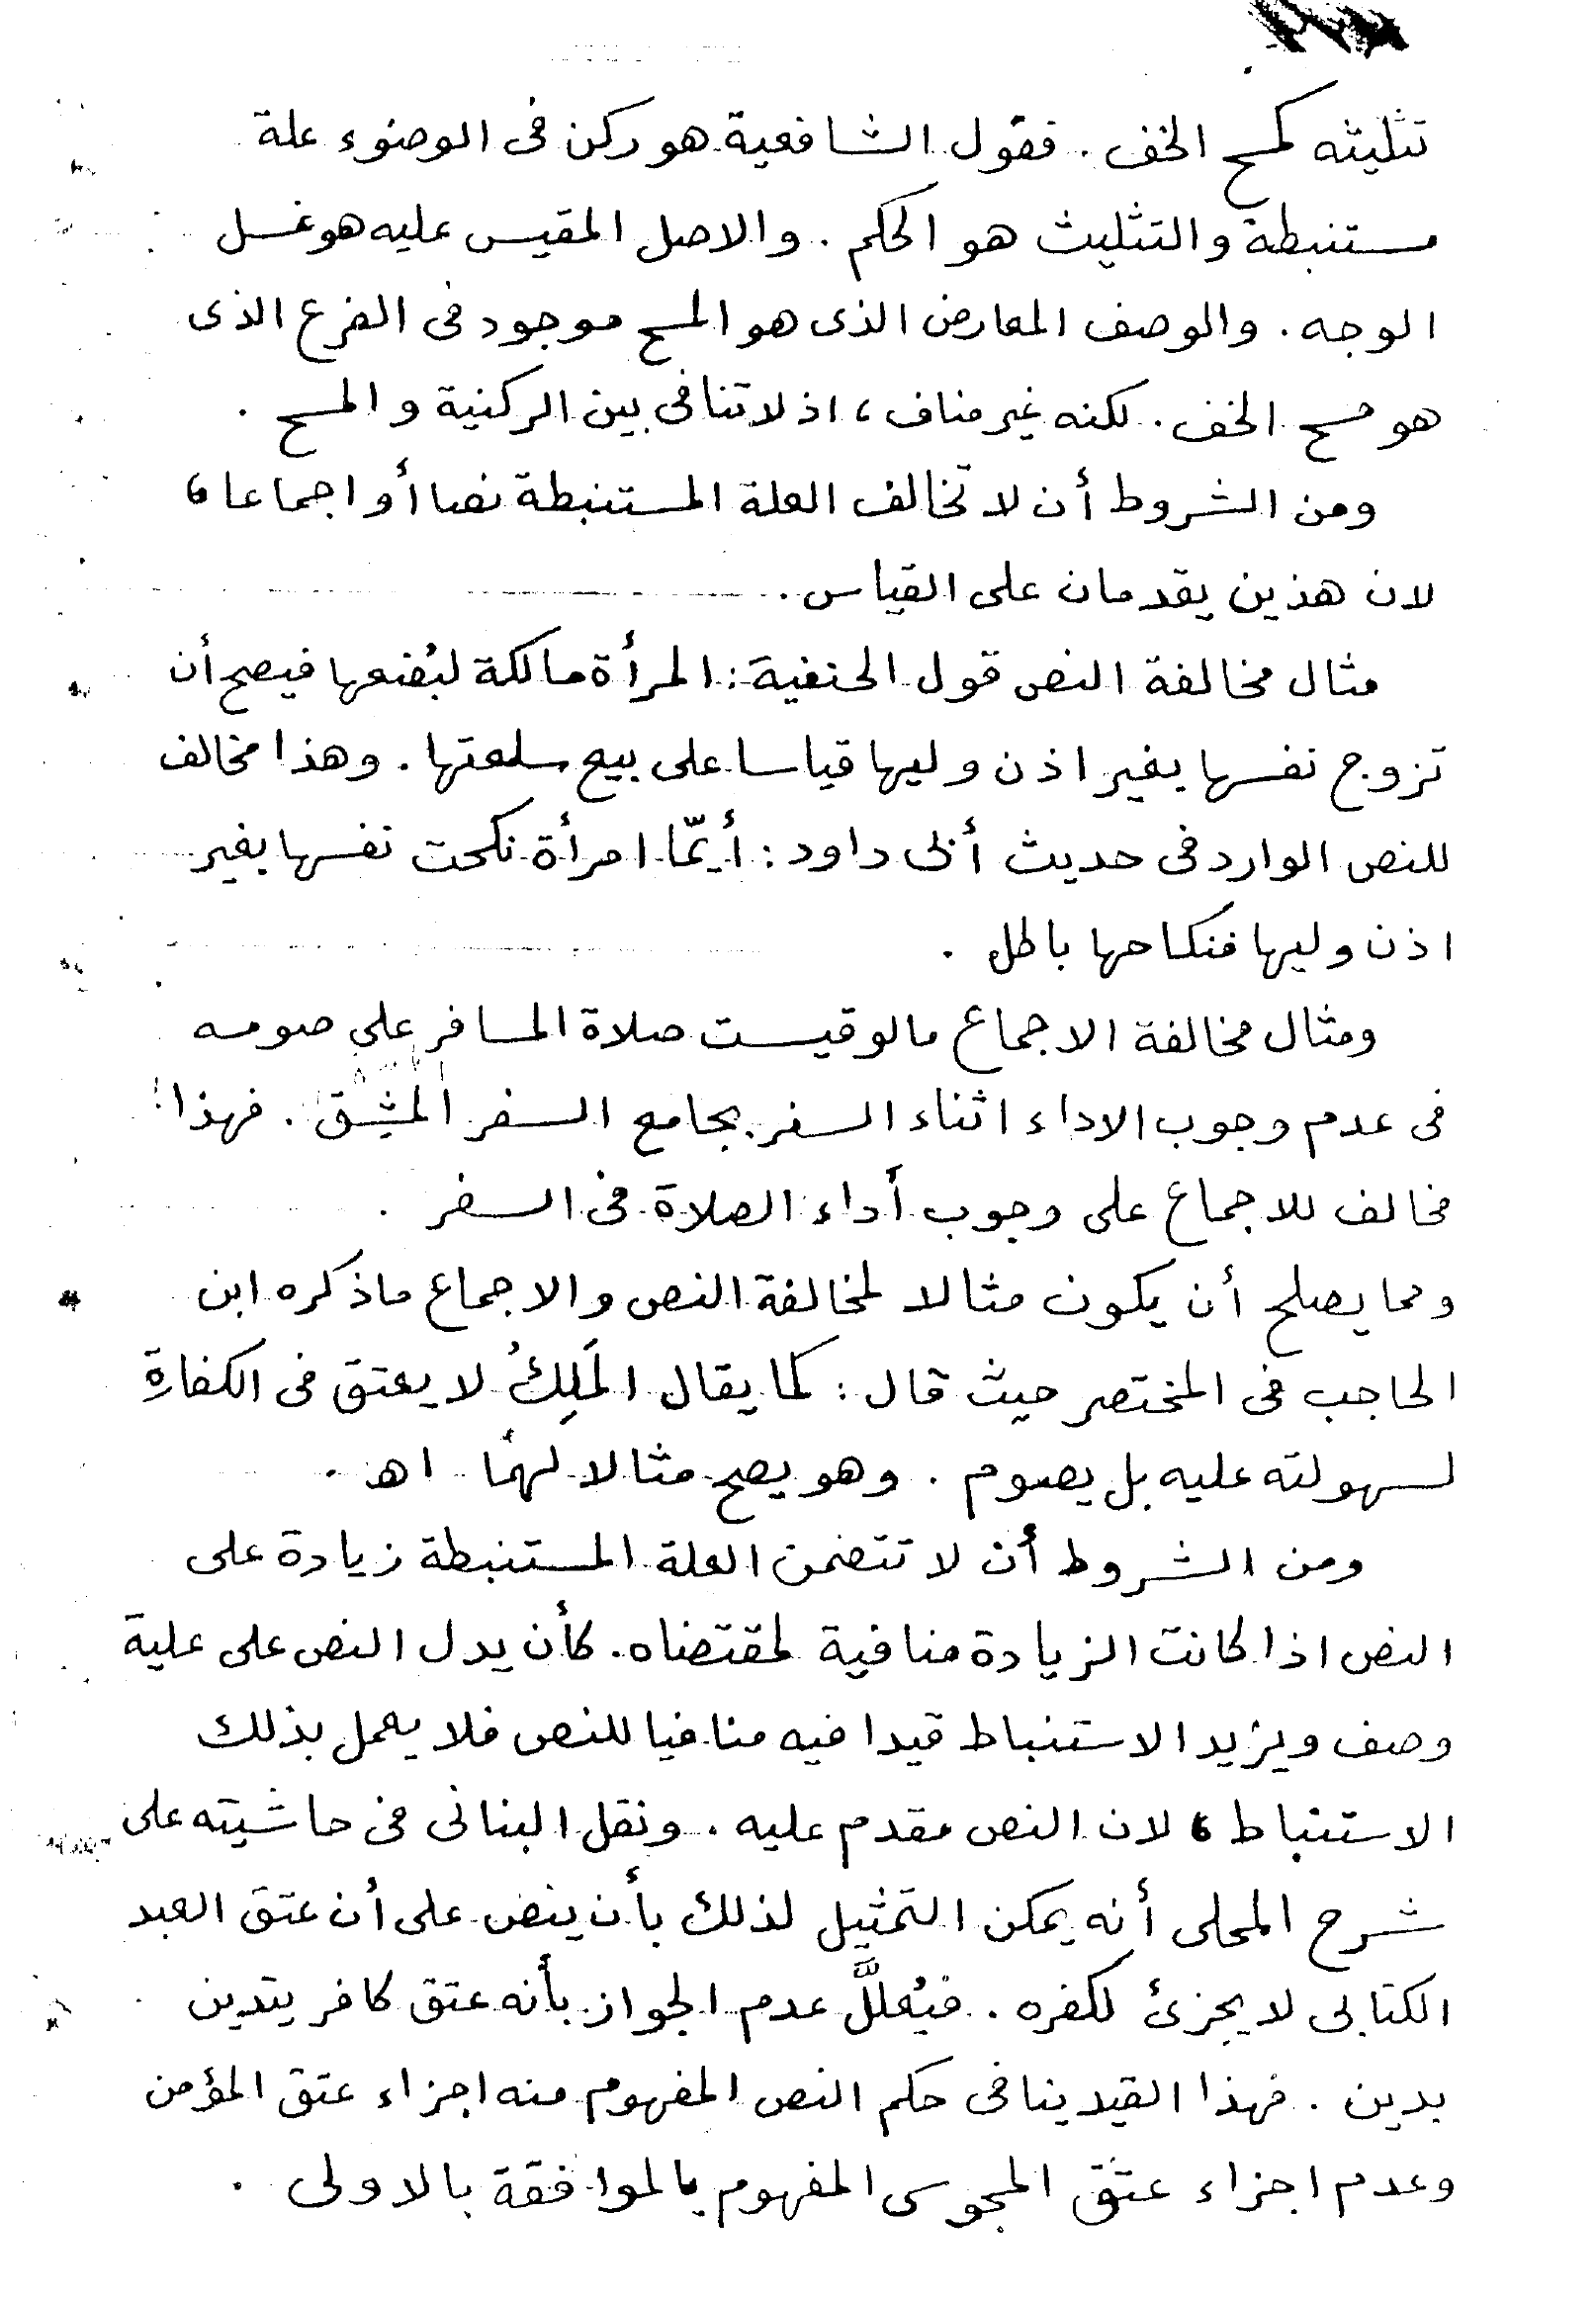 تثليثه كمسح الخف . فقول الشافعية هو ركن فى الوضوء علة
مستنبطة والتثليث هو الحكم . والاصل المقيس عليه هو غسل
الوجه . والوصف المعارض الذى هو المسح موجود فى الفرع الذى
هو مسح الخف . لكنه غير مناف ، اذ لا تنافى بين الركنية والمسح .
ومن الشروط أن لا تخالف العلة المستنبطة نصا أو اجماعا ،
لان هذين يقدمان على القياس .
مثال مخالفة النص قول الحنفية : المرأة مالكة لبُضعها فيصح أن
تزوج نفسها بغير اذن وليها قياسا على بيع سلعتها . وهذا مخالف
للنص الوارد فى حديث أبى داود : أيمّا امرأة نكحت نفسها بغير
اذن وليها فنكاحها باطل .
ومثال مخالفة الاجماع ما لو قيست صلاة المسافر على صومه
فى عدم وجوب الاداء اثناء السفر بجامع السفر المشِق . فهذا
مخالف للاجماع على وجوب أداء الصلاة فى السفر .
ومما يصلح أن يكون مثالا لمخالفة النص والاجماع ما ذكره ابن
الحاجب فى المختصر حيث قال : كما يقال المَلِكُ لا يعتق فى الكفارةِ
لسهولته عليه بل يصوم . وهو يصح مثالا لهما اهـ .
ومن الشروط أن لا تتضمن العلة المستنبطة زيادة على
النص اذا كانت الزيادة منافية لمقتضاه . كأن يدل النص على علية
وصف ويزيد الاستنباط قيدا فيه منافيا للنص فلا يعمل بذلك
الاستنباط ، لان النص مقدم عليه . ونقل البنانى فى حاشيته على
شرح المحلى أنه يمكن التمثيل لذلك بأن ينص على أن عتق العبد
الكتابى لا يجزئ لكفره . فيُعللَّ عدم الجواز بأنه عتق كافر يتدين
بدين . فهذا القيد ينافى حكم النص المفهوم منه اجزاء عتق المؤمن
وعدم اجزاء عتق المجوسى المفهوم بالموافقة بالاولى .